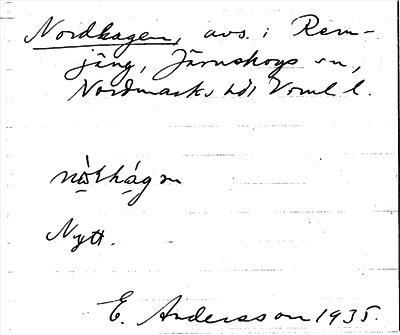 Nordhagen, avs. i Rem-
jäng, Järnskogs sn,
Nordmarks hd Vrml l.
Nytt.
E. Andersson 1935.